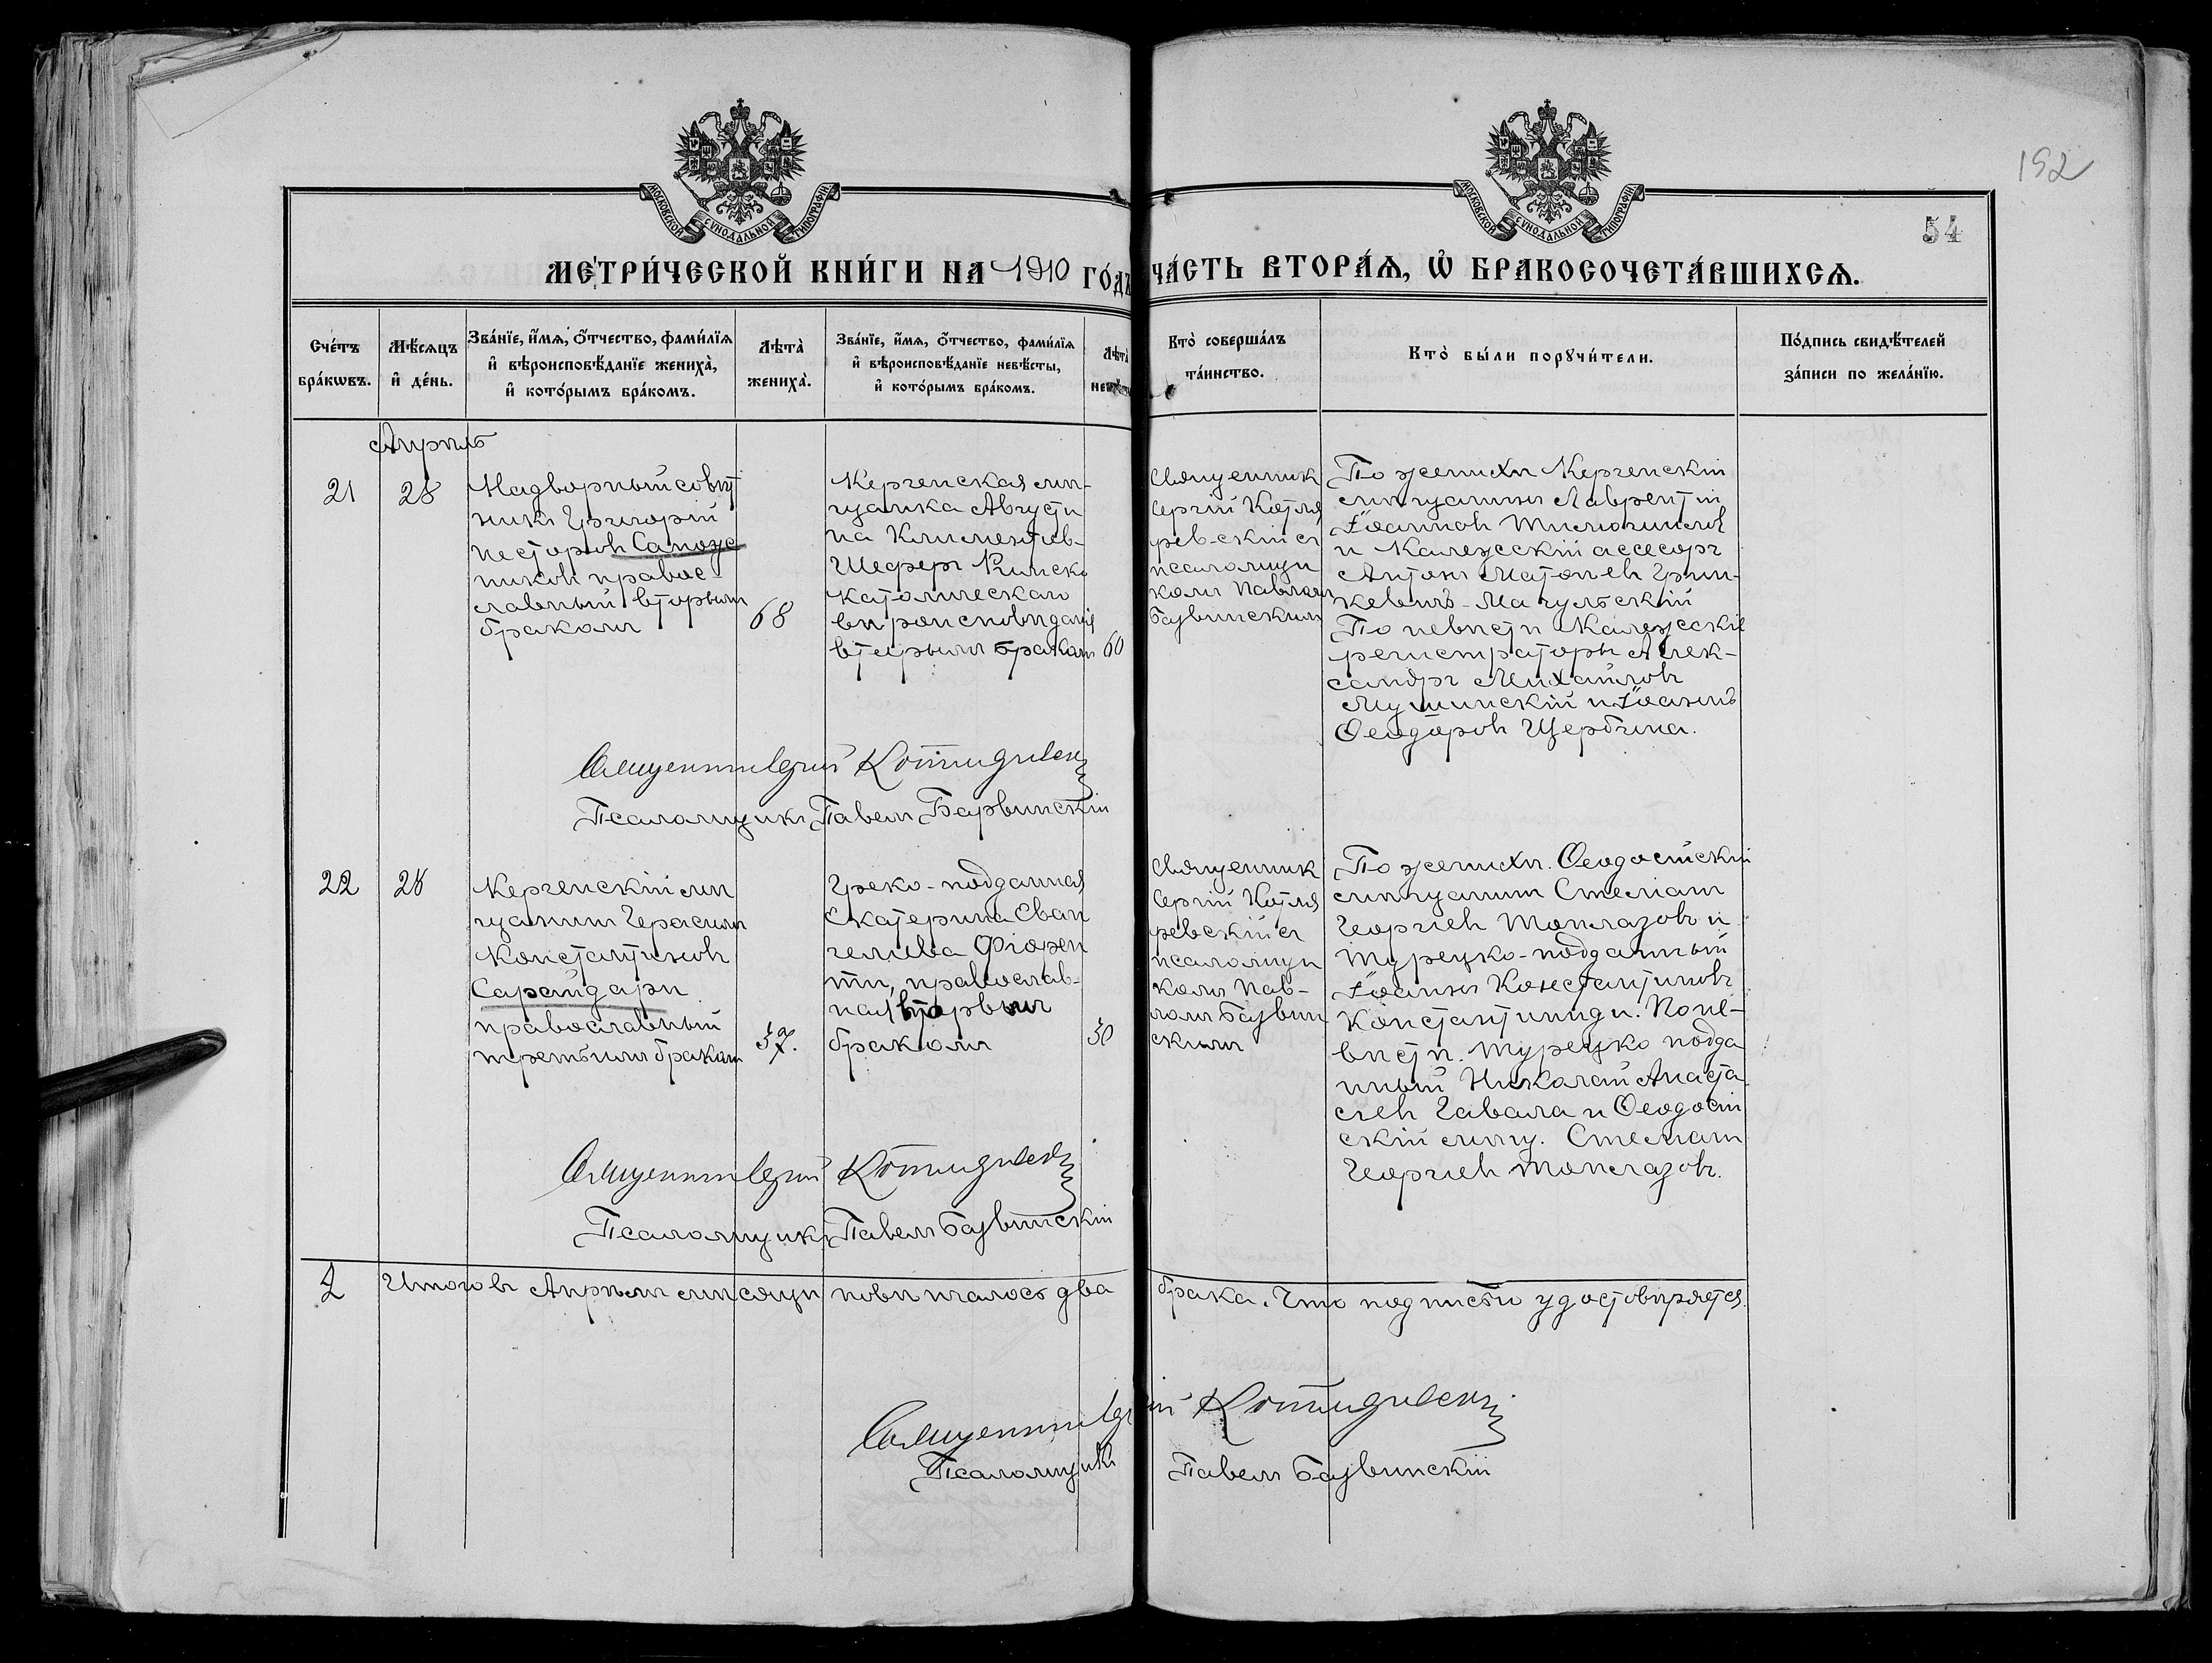 192
54
МОСКОВСКОЙ СѴНОДАЛЬНОЙ ТИПОГРАФІИ
МОСКОВСКОЙ СѴНОДАЛЬНОЙ ТИПОГРАФІИ
МЕТРИ́ЧЕСКОЙ КНИ́ГИ НА 1910 ГО́ДЪ
ЧА́СТЬ ВТОРА́Ѧ, Ѡ БРАКОСОЧЕТА́ВШИХСѦ.
Сче́тъ бра́кѡвъ.
Мѣ́сѧцъ и҆ де́нь.
Зва́нїе, и҆́мѧ, о҆́тчество, фами́лїѧ
и҆ вѣроисповѣ́данїе жениха̀,
и҆ кото́рымъ бра́комъ.
Лѣта̀ жениха̀.
Зва́нїе, и҆́мѧ, о҆́тчество, фами́лїѧ
и҆ вѣроисповѣ́данїе невѣ́сты,
и҆ кото́рымъ бра́комъ.
Лѣта̀
Кто̀ соверша́лъ та́инство.
Кто̀ бы́ли порꙋчи́тели.
По́дпись свидѣ́телей
за́писи по жела́нїю.
Апрѣль
21
28
Надворный совѣт
никъ Григорій
Несторовъ Сапож
никовъ правос-
лавный вторымъ
бракомъ
68
Керченская мѣ-
щанка Августи
на Климентов-
Шеферъ Римско
католическаго
вѣроисповѣданія
вторымъ бракомъ
60
Священникъ
Сергій Котля
ревскій съ
псаломщи
комъ Павломъ
Барвинскимъ
По женихѣ Керченскій
мѣщанинъ Лаврентій
Іоанновъ
и Калежскій асессоръ
Антонъ Матѳіевъ Грин-
кевичъ-
По невѣстѣ Калежскіе
регистраторы Алек-
сандръ Михайловъ
Мушинскій и Іоаннъ
Ѳеодоровъ Щербина.
Священникъ Сергій Котляревскій
Псаломщикъ Павелъ Барвинскій
22
28
Керченскій мѣ
щанинъ Герасимъ
Константиновъ
Сарандари
православный
третьимъ бракомъ
37.
Греко-подданная
Екатерина Еван
гелиева Фіорен
ти, православ-
ная вторымъ
бракомъ
30
Священникъ
Сергій Котля
ревскій съ
псаломщи
комъ Пав-
ломъ Барвин
скимъ
По женихѣ. Ѳеодосійскій
мѣщанинъ Стеліанъ
Георгіевъ Топлазовъ и
турецко-подданный
Іоаннъ Константиновъ
Константиниди. По не-
вѣстѣ. Турецко подда
нный Николай Анаста
сіевъ Гавала и Ѳеодосій
скій мѣщ. Стеліанъ
Георгіевъ Топлазовъ.
Священникъ Сергій Котляревскій
Псаломщикъ Павелъ Барвинскій
2 Итого въ Апрѣлѣ мѣсяцѣ повѣнчалось два брака. Что подписью удостовѣряется.
Священникъ Сергій Котляревскій
Псаломщикъ Павелъ Барвинскій